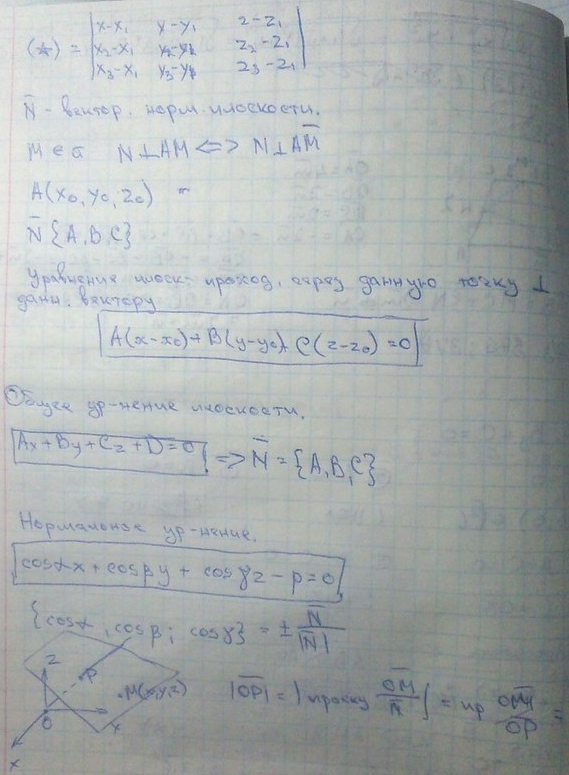 (*) = | x-x₁ y-y₁ z-z₁ |
| x₂-x₁ y₂-y₁ z₂-z₁ |
| x₃-x₁ y₃-y₁ z₃-z₁ |
N̄ - вектор. норм. плоскости.
M ∈ α N⊥AM <=> N̄⊥AM̄
A(x₀, y₀, z₀)
N̄ {A, B, C}
Уравнение плоск. проход. через данную точку ⊥
данн. вектору
A(x-x₀)+B(y-y₀)+C(z-z₀)=0
Общее ур-нение плоскости.
Ax+By+Cz+D=0 => N̄ = {A,B,C}
Нормальное ур-нение.
cosαx+cosβy+cosγz-p=0
{cosα, cosβ; cosγ} = ± N̄/|N̄|
z
P
M(x,y,z)
O
x
x
|OP̄| = | OM̄/N̄ | = пр OM̄/OP̄ =